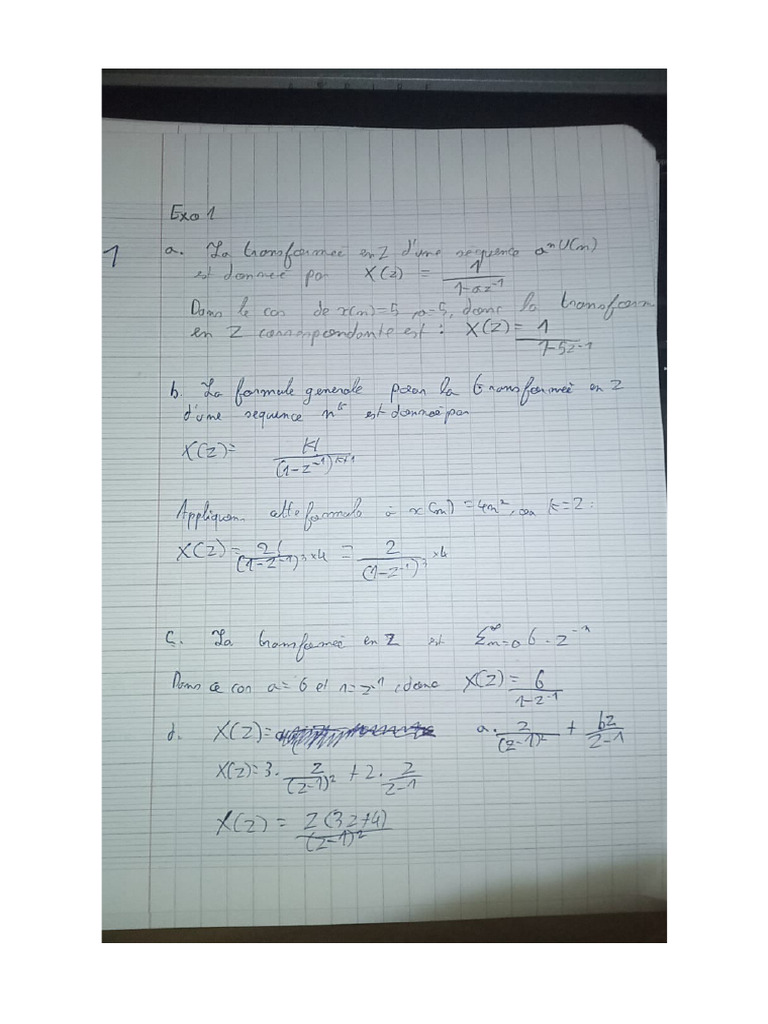 Exo 1
1 a. La transformeé en Z d'une sequence aⁿU(n)
est donneé par X(z) = 1/(1-az⁻¹)
Dans le cas de x(n)=5, a=5, donc la transform
en Z correspondante est : X(Z) = 1/(1-5z⁻¹)
b. La formule generale pour la transformeé en Z
d'une sequence nᵏ est donneé par
X(Z) = K!/(1-z⁻¹)ᴷ⁺¹
Appliquons cette formule à x(n) = 4n², ou K=2 :
X(Z) = 2!/(1-z⁻¹)³ ×4 = 2/(1-z⁻¹)³ ×4
c. La transformeé en Z est Σn=0^∞ 6 · z⁻ⁿ
Dans ce cas a=6 et r=z⁻¹, donc X(Z) = 6/(1-z⁻¹)
d. X(Z) = a · z/(z-1)² + bz/(z-1)
X(Z) = 3 · z/(z-1)² + 2 · z/(z-1)
X(Z) = Z(3z+4)/(z-1)²